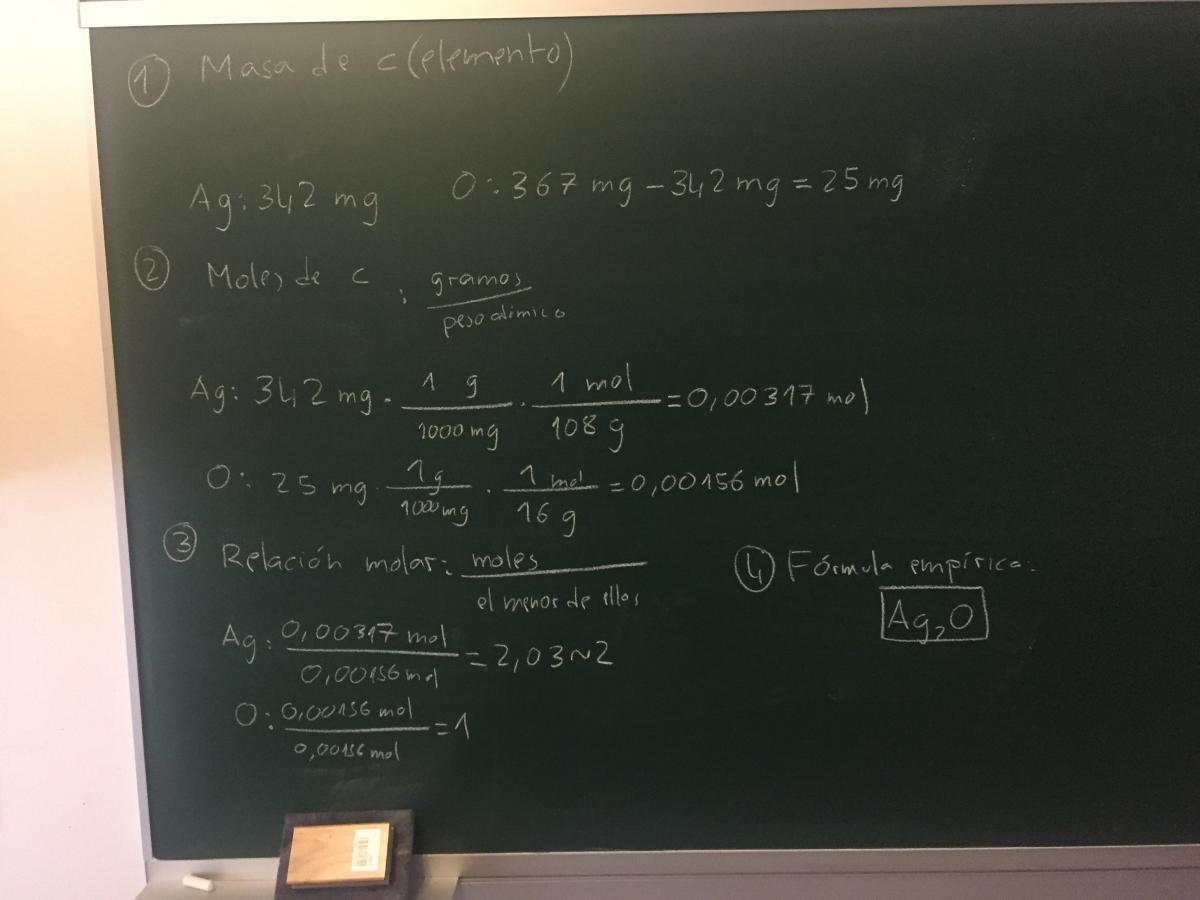 ① Masa de c(elemento)
Ag: 342 mg O: 367 mg – 342 mg = 25 mg
② Moles de c : gramos
peso atómico
Ag: 342 mg · 1 g / 1000 mg · 1 mol / 108 g = 0,00317 mol
O: 25 mg · 1 g / 1000 mg · 1 mol / 16 g = 0,00156 mol
③ Relación molar: moles
el menor de ellos
④ Fórmula empírica:
Ag₂O
Ag: 0,00317 mol / 0,00156 mol = 2,03 ~ 2
O: 0,00156 mol / 0,00156 mol = 1